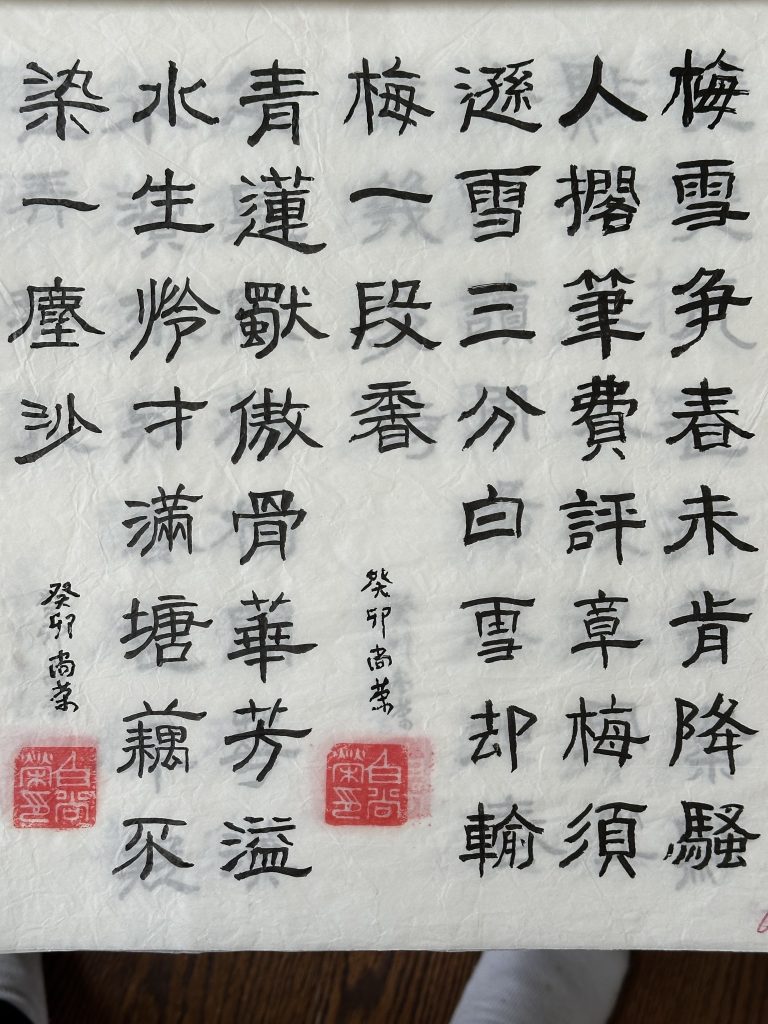 梅雪争春未肯降騷
人擱筆費評章梅須
遜雪三分白雪却輸
梅一段香
癸卯尚荣
白尚榮印
青蓮獨傲骨華芳溢
水生怜才滿塘藕不
染一塵沙
癸卯尚荣
白尚榮印